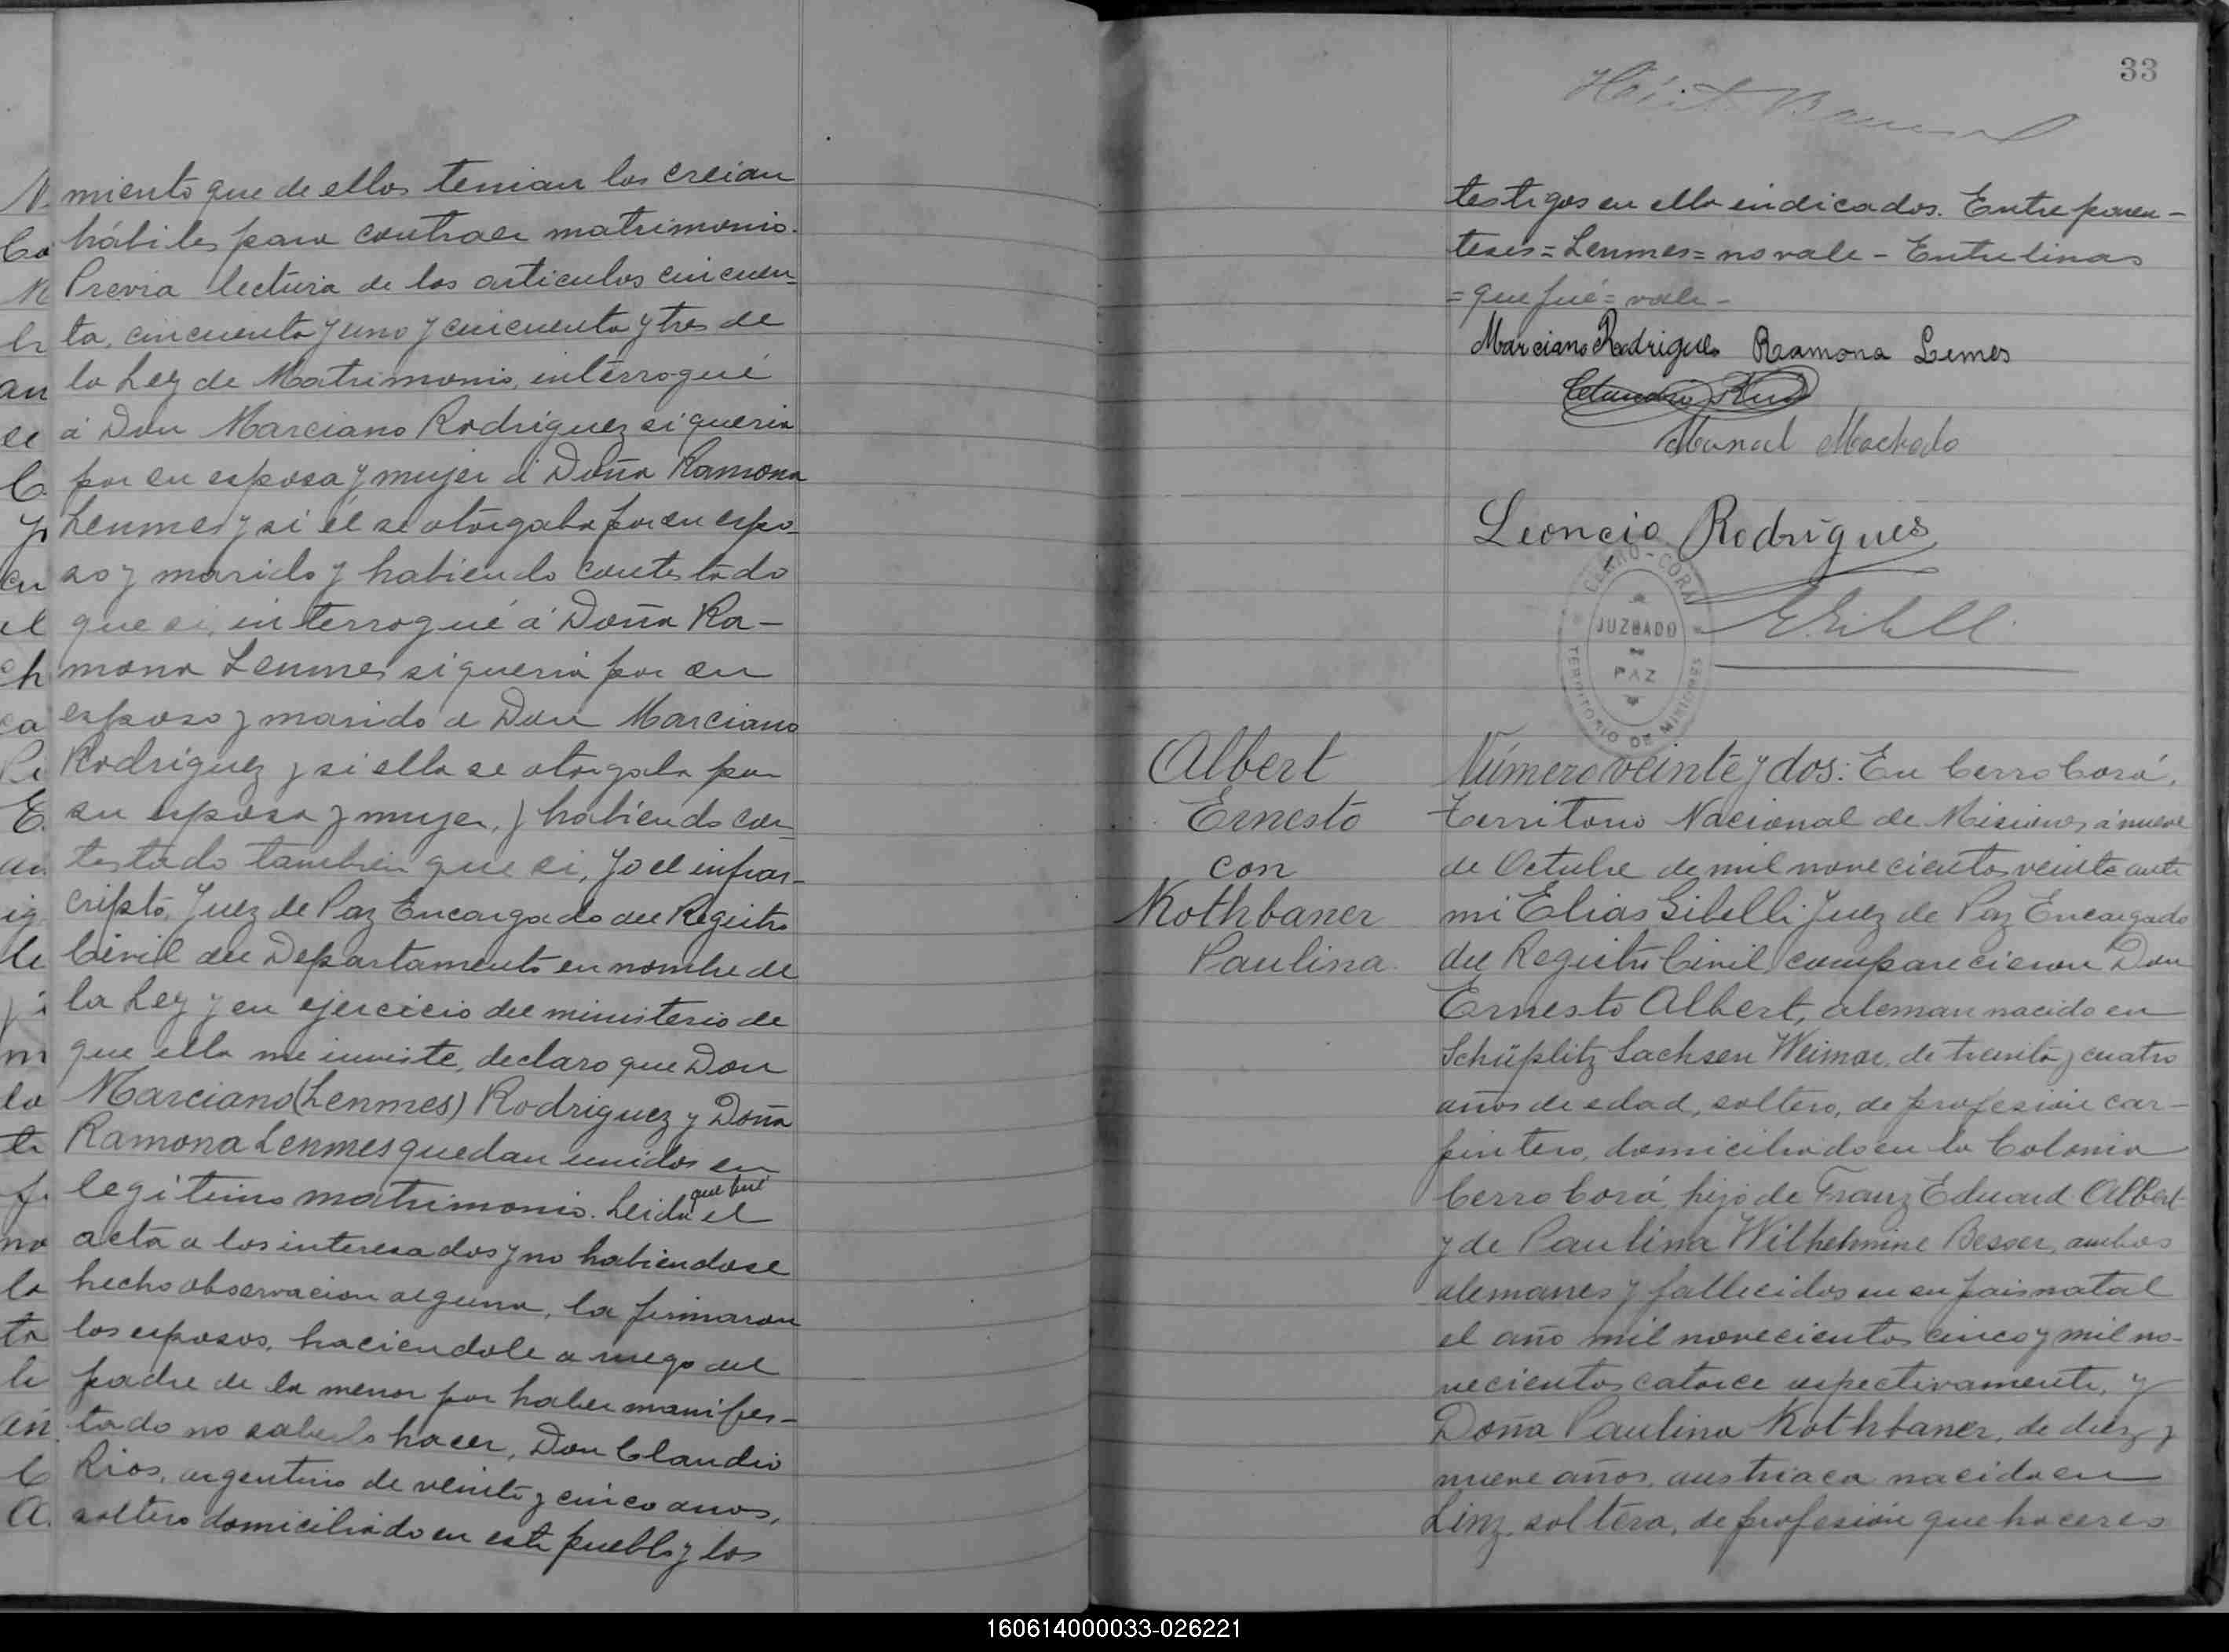 miento que de ellos tenian los creian
hábiles para contraer matrimonio.
Previa lectura de los articulos cincuen=
ta, cincuenta y uno y cincuenta y tres de
la Ley de Matrimonio, interrogué
á Don Marciano Rodriguez si queria
por su esposa y mujer á Doña Ramona
Lenmes y si él se otorgaba por su espo-
so y marido y habiendo contestado
que si, interrogué á Doña Ra-
mona Lenmes si queria por su
esposo y marido a Don Marciano
Rodriguez y si ella se otorgaba por
su esposa y mujer, y habiendo con-
testado tambien que si, yo el infras-
cripto, Juez de Paz Encargado del Registro
Civil del Departamento en nombre de
la Ley y en ejercicio del ministerio de
que ella me inviste, declaro que Don
Marciano (Lenmes) Rodriguez y Doña
Ramona Lenmes quedan unidos en
legitimo matrimonio. Leida que fué el
acta a los interesados y no habiendose
hecho observacion alguna, la firmaron
los esposos, haciendole a ruego del
padre de la menor por haber manifes-
tado no saberlo hacer, Don Claudio
Rios, argentino de veinte y cinco anos,
soltero domiciliado en este pueblo y los
33
testigos en ella indicados. Entre paren-
teses = Lenmes = no vale - Entre linas
= que fué = vale -
Marciano Rodrigues Ramona Lemes
Manuel Machado
Leoncio Rodrigues
CERRO-CORA
JUZGADO
PAZ
TERRITORIO DE MISIONES
E. Gibelli
Albert
Ernesto
con
Kothbaner
Paulina
Número veinte y dos: En Cerro Corá,
territorio Nacional de Misiones á nueve
de Octubre de mil novecientos veinte ante
mi Elias Gibelli Juez de Paz Encargado
del Registro Civil, comparecieron Don
Ernesto Albert, aleman nacido en
Schüplitz Sachsen Weimar, de treinta y cuatro
años de edad, soltero, de profesion car-
pintero, domiciliado en la Colonia
Cerro Corá, hijo de Franz Eduard Albert
y de Paulina Wilhelmine Besser, ambos
alemanes y fallecidos en su pais natal
el año mil novecientos cinco y mil no-
vecientos catorce respectivamente, y
Doña Paulina Kothbaner, de diez y
nueve años, austriaca nacida en
Linz, soltera, de profesión que haceres
160614000033-026221